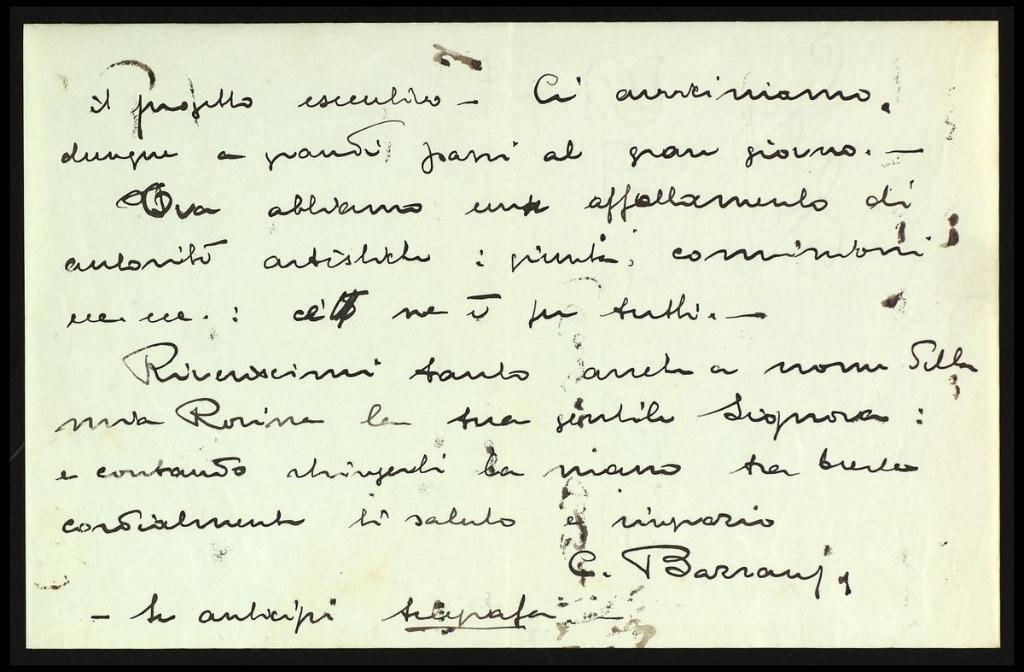 il progetto esecutivo – Ci avviciniamo,
dunque a grandi passi al gran giorno. –
Ora abbiamo un affollamento di
autorità artistiche : giunta, commissioni
ecc. ecc. : ce ne è per tutti. –
Riveriscimi tanto anche a nome della
mia Rosina la tua gentile Signora :
e contando stringerti la mano tra breve
cordialmente ti saluto e ringrazio
C.
– Se anticipi telegrafa –